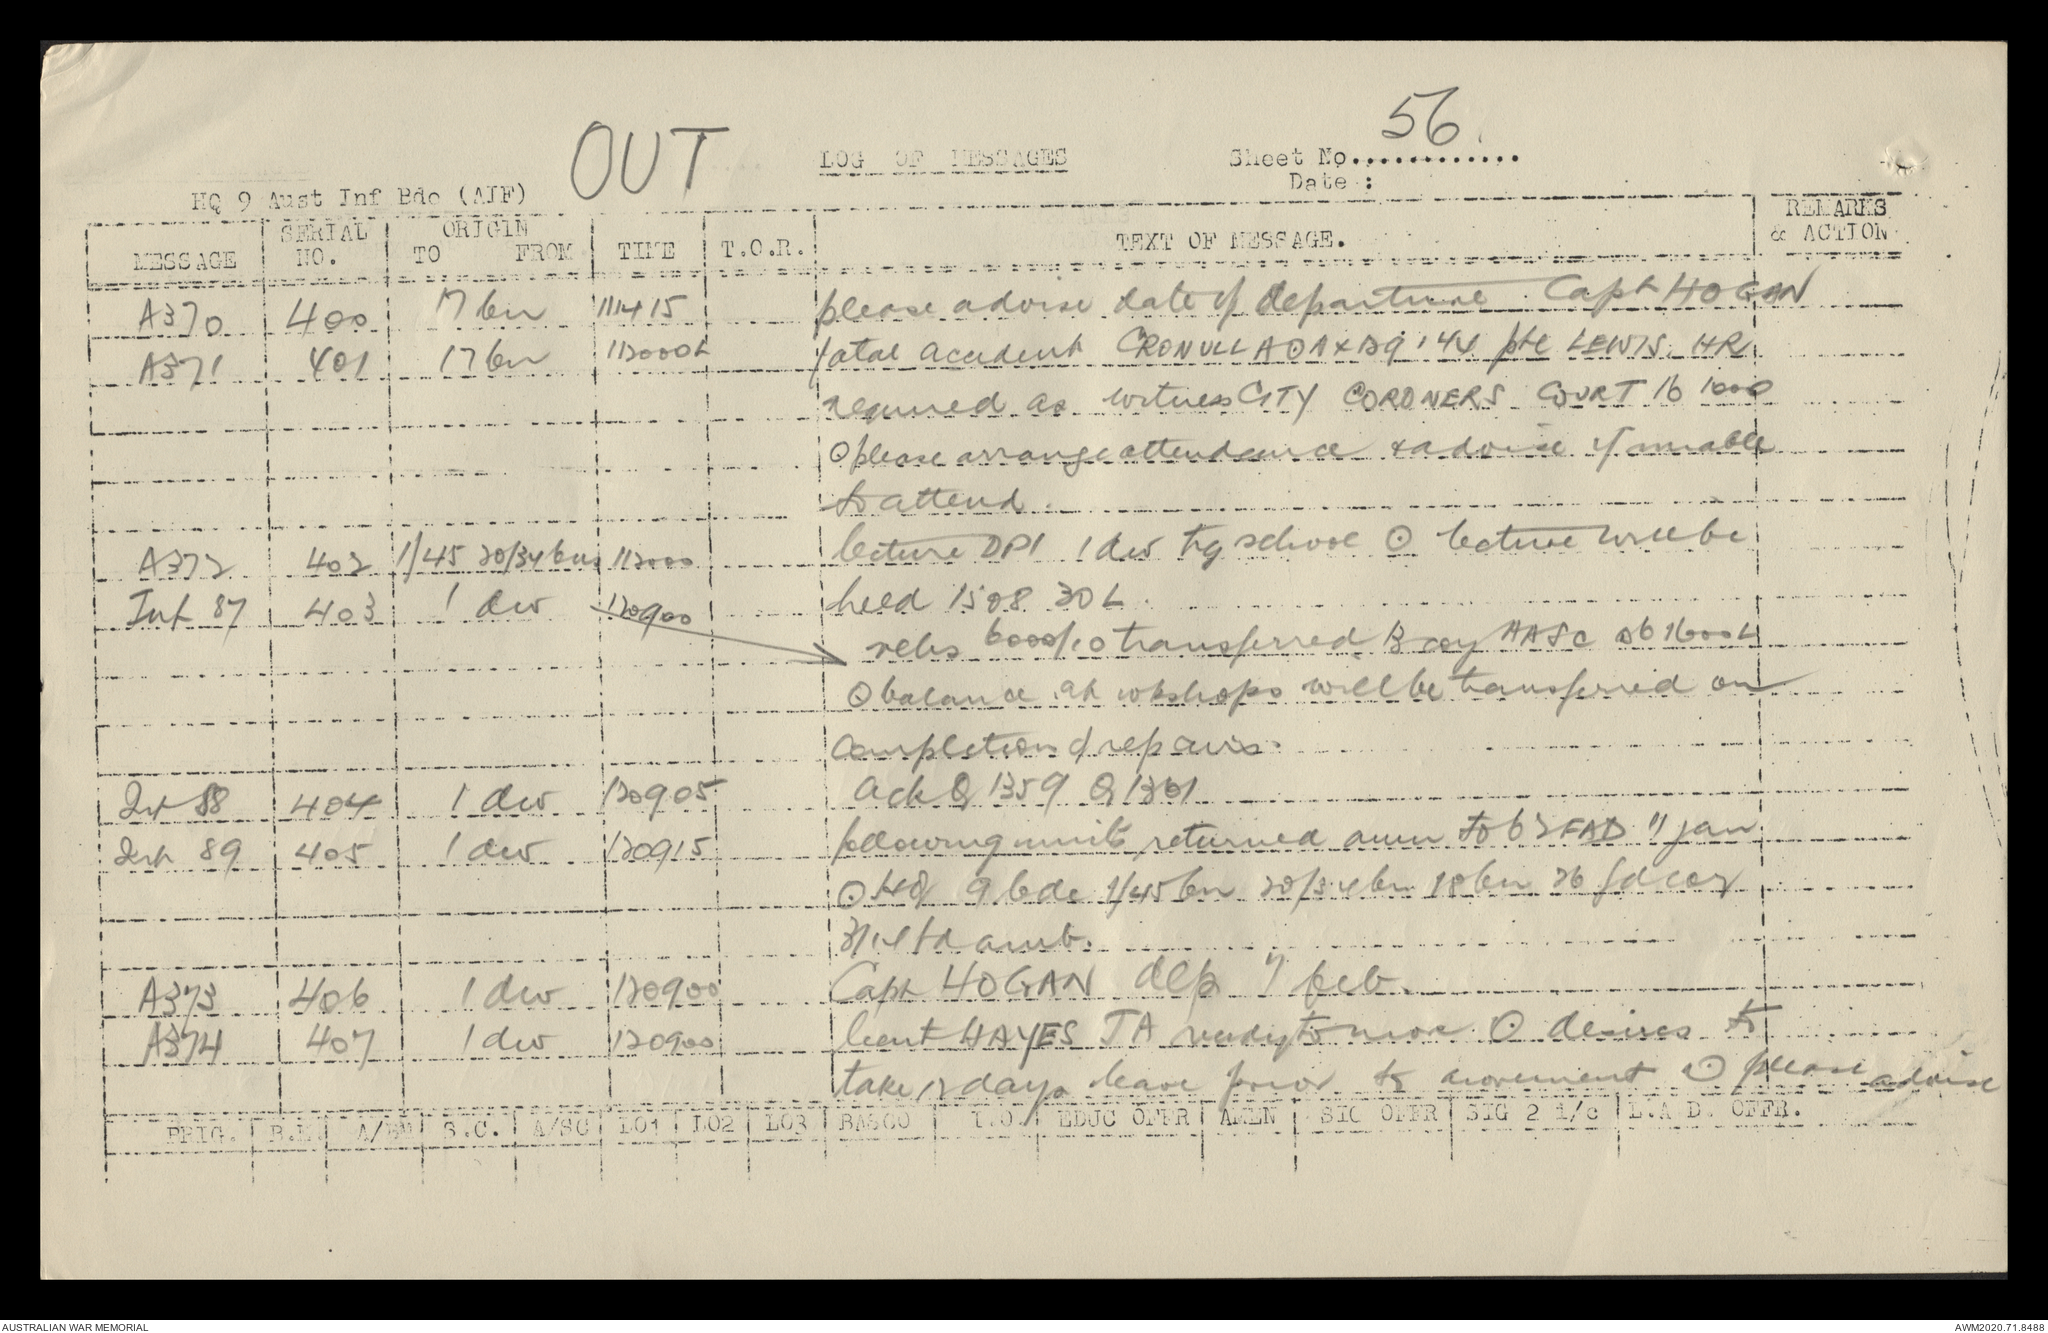 56
OUT
LOG OF MESSAGES
Sheet No.............
Date :
HQ 9 Aust Inf Bde (AIF)
MESSAGE SERIAL NO. ORIGIN TO FROM TIME T.O.R. TEXT OF MESSAGE. REMARKS & ACTION
A370 400 17 bn 111415 please advise date of departure Capt HOGAN
A371 401 17 bn 112000L fatal accident CRONULLA 29 '44 pte LEWIS HR
required as witness CITY CORONERS COURT 16 1000
⊙ please arrange attendance & advise if unable
to attend.
A372 402 1/45 20/34 bns 112000 lecture DP1 1 div trg school ⊙ lecture will be
Int 87 403 1 div 120900 held 150830L.
vehs transferred B coy AASC 1600L
⊙ balance at wkshops will be transferred on
completion of repairs.
Int 88 404 1 div 120905 ack Q 1359 Q 1301
Int 89 405 1 div 120915 following units returned amn to FAD 11 jan
⊙ HQ 9 bde 1/45 bn 20/34 bn 18 bn 26 fd coy
fd amb.
A373 406 1 div 120900 Capt HOGAN dep 7 feb.
A374 407 1 div 120900 lieut HAYES JA ready to move ⊙ desires to
take 12 days leave prior to movement ⊙ please advise
BRIG. B.M. A/BM S.C. A/SC LO1 LO2 LO3 BASCO I.O. EDUC OFFR AMEN SIG OFFR SIG 2 i/c L.A.D. OFFR.
AUSTRALIAN WAR MEMORIAL
AWM2020.71.8488